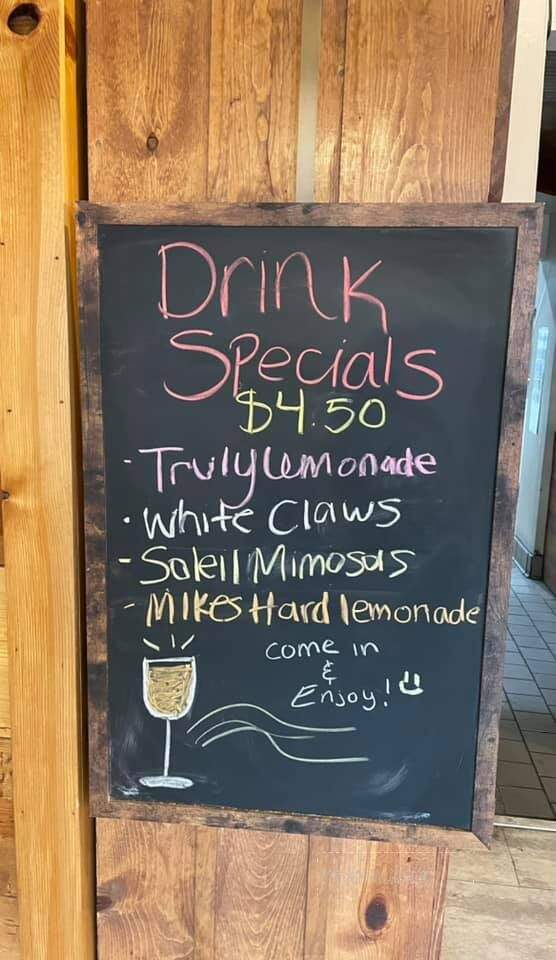 Drink
Specials
$4.50
- Truly lemonade
· White Claws
- Soleil Mimosas
- Mikes Hard lemonade
come in
&
Enjoy!